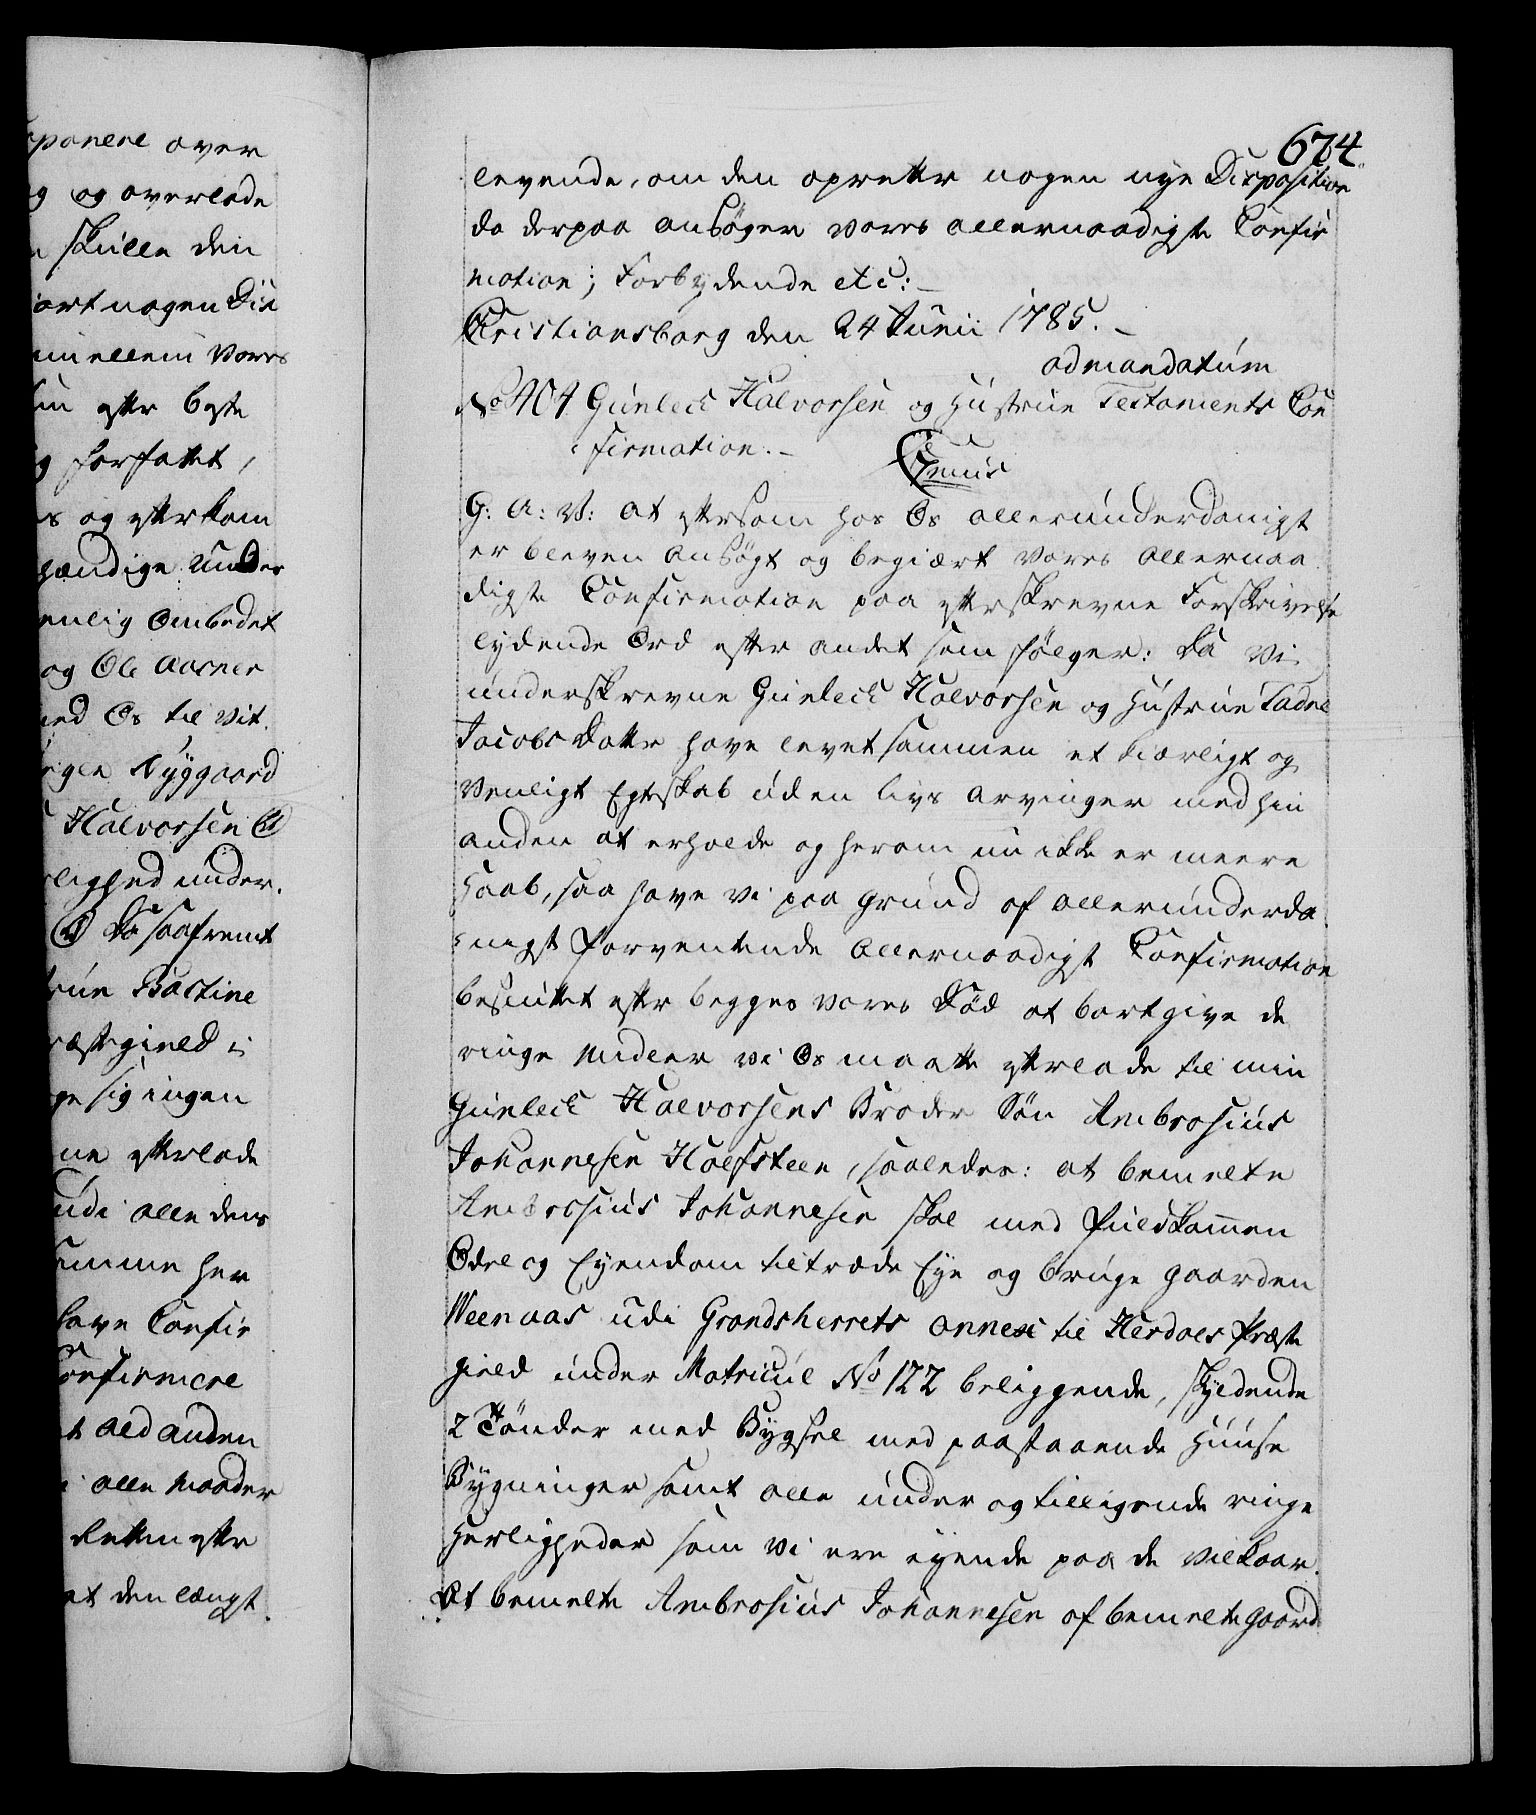 sponere over
g og overlade
skulle den
iort nogen Dis
imellem vores
sin efter beste
g forfattet,
s og efterkom
hændige under
enlig ombedet
og Ole Aasner
med Os til vit
Nyggaard
Halvorsen
lighed under.
Da saafremt
trúe Bastine
ræstegield i
ge sig ingen
ne efterlade
údi alle dens
summe her
have Confir
Confirmere
t ald anden
i alle maader
Retten efter
at den længst
674
levende, om den opretter nogen nye Disposition
da derpaa ansøger vores allernaadigste Confir
mation; Forbydende etc:
Christiansborg den 24 Junii 1785.
ad mandatum
No 404 Gunleck Halvorsen og Hustrue Testaments Con
firmation.
G: A: V: at eftersom hos Os allerunderdanigst
er bleven ansøgt og begiært vores allernaa
digste Confirmation paa efterskrevne Forskrivelse
lydende Ord efter andet som følger: Da vi
underskrevne Gunleck Halvorsen og Hustrue Tadne
Jacobs Datter have levet sammen et kiærligt og
venligt Egteskab uden livs arvinger med hin
anden at erholde og herom nu ikke er meere
haab, saa have vi paa grund af allerunderda
nigst forventende allernaadigst Confirmation
besluttet efter begges vores Død at bortgive de
ringe midler vi Os maatte efterlade til min
Gunleck Halvorsens Broder Søn Ambrosius
Johannesen Holfsteen, saaledes: at bemelte
Ambrosius Johannesen skal med fuldkommen
Odel og Eyendom tiltræde Eye og bruge gaarden
Weenaas udi Grandsherrets annex til Herdals Præste
gield under Matricul No 122 beliggende, skyldende
2 Tønder med Bygsel med paastaaende Huuse
Bygninger samt alle under og tilligende ringe
Herligheder som vi ere eyende paa de vilkaar.
At bemelte Ambrosius Johannesen af bemelte gaard